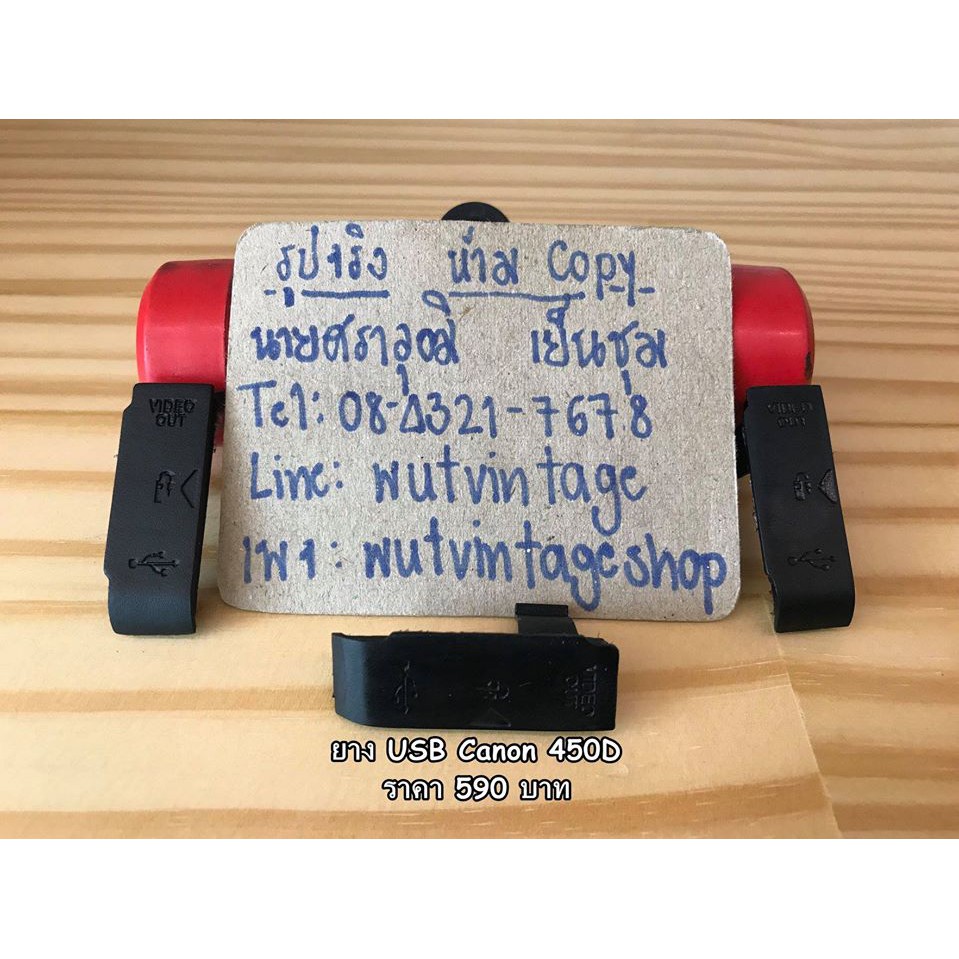 รูปจริง ห้าม Copy
นายศราวุฒิ เย็นชุม
Tel: 08-4321-7678
Line: wutvintage
เพจ: wutvintageshop
VIDEO OUT
VIDEO OUT
VIDEO OUT
ยาง USB Canon 450D
ราคา 590 บาท